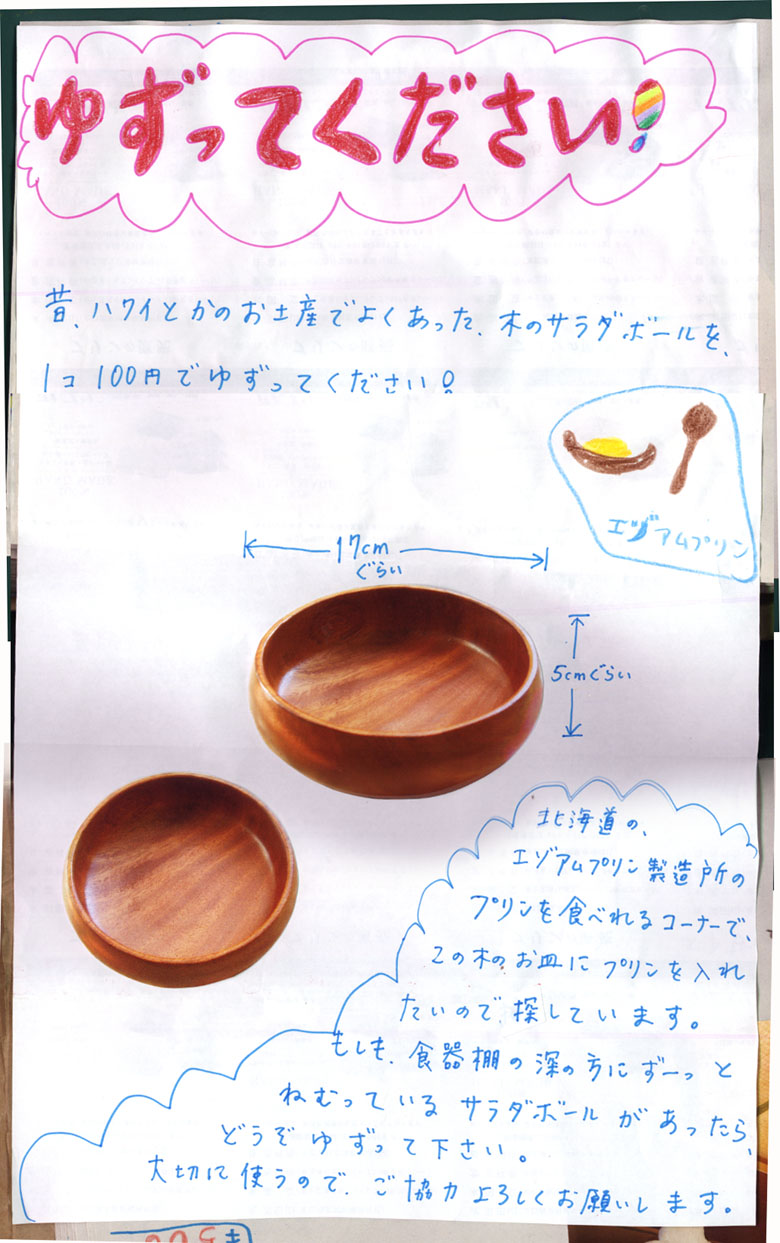 ゆずってください!
昔、ハワイとかのお土産でよくあった、木のサラダボールを、
1コ100円でゆずってください!
エゾアムプリン
17cm
ぐらい
5cmぐらい
北海道の、
エゾアムプリン製造所の
プリンを食べれるコーナーで、
この木のお皿にプリンを入れ
たいので探しています。
もしも、食器棚の深の方にずーっと
ねむっているサラダボールがあったら、
どうぞゆずって下さい。
大切に使うので、ご協力よろしくお願いします。